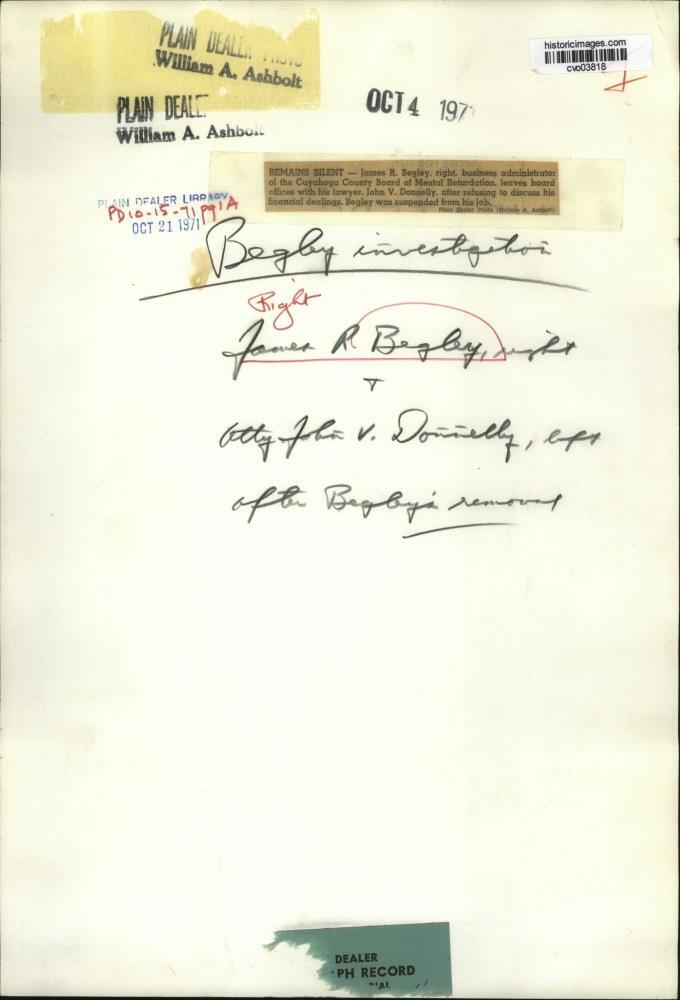 historicimages.com
cvo03818
PLAIN DEALER PHOTO
William A. Ashbolt
PLAIN DEALE
William A. Ashbolt
OCT 4 197
REMAINS SILENT — James R. Begley, right, business administrator
of the Cuyahoga County Board of Mental Retardation, leaves board
offices with his lawyer, John V. Donnelly, after refusing to discuss his
financial dealings. Begley was suspended from his job.
Plain Dealer Photo (William A. Ashbolt)
PLAIN DEALER LIBRARY
PD 10-15-71 pg 1A
OCT 21 1971
Begley investigation
Right
James R Begley, right
+
Atty John V. Donnelly, left
after Begley's removal
DEALER
PH RECORD